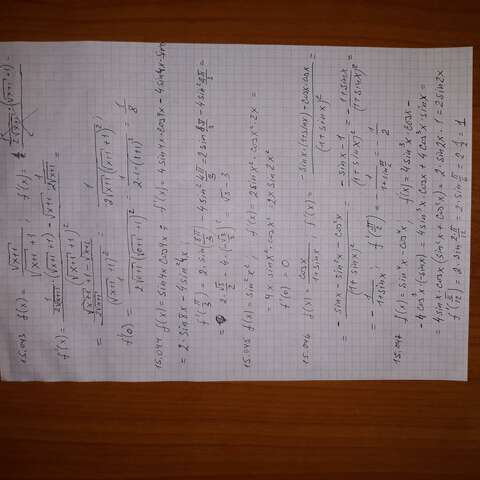 15.043 f(x) = √(x+1) / (√(x+1) + 1) ; f'(x) =
f'(x) = (1/(2√(x+1)) · (√(x+1) + 1) − √(x+1) · 1/(2√(x+1))) / (√(x+1) + 1)² =
= 1 / (2√(x+1)(√(x+1) + 1)²) ;
f'(0) = 1 / (2√(x+1)(√(x+1) + 1)²) = 1 / (2·1·(1+1)²) = 1/8
15.044 f(x) = sin4x cos4x ; f'(x) = 4sin4x · cos4x − 4sin4x · sin
= 2 · sin8x − 4sin²4x ;
f'(π/3) = 2 · sin(8π/3) − 4sin² 4π/3 = 2sin 8π/3 − 4sin² 4π/3 =
= 2 · √3/2 − 4 · (√3/2)² = √3 − 3
15.045 f(x) = sin²x² ; f'(x) = 2sinx² · cosx² · 2x =
= 4x sinx² · cosx² = 2x sin2x²
f'(0) = 0
15.046 f(x) = cosx / (1+sinx) ; f'(x) = (−sinx · (1+sinx) − cosx · cosx) / (1+sinx)² =
= (−sinx − sin²x − cos²x) / (1+sinx)² = (−sinx − 1) / (1+sinx)² = − (1+sinx) / (1+sinx)² =
= − 1/(1+sinx) ; f'(π/2) = − 1/(1+sin π/2) = − 1/2
15.047 f(x) = sin⁴x − cos⁴x ; f'(x) = 4sin³x · cosx −
− 4cos³x · (−sinx) = 4sin³x cosx + 4cos³x · sinx =
= 4sinx cosx (sin²x + cos²x) = 2 · sin2x · 1 = 2sin2x
f'(π/12) = 2 · sin 2π/12 = 2 · sin π/6 = 2 · 1/2 = 1